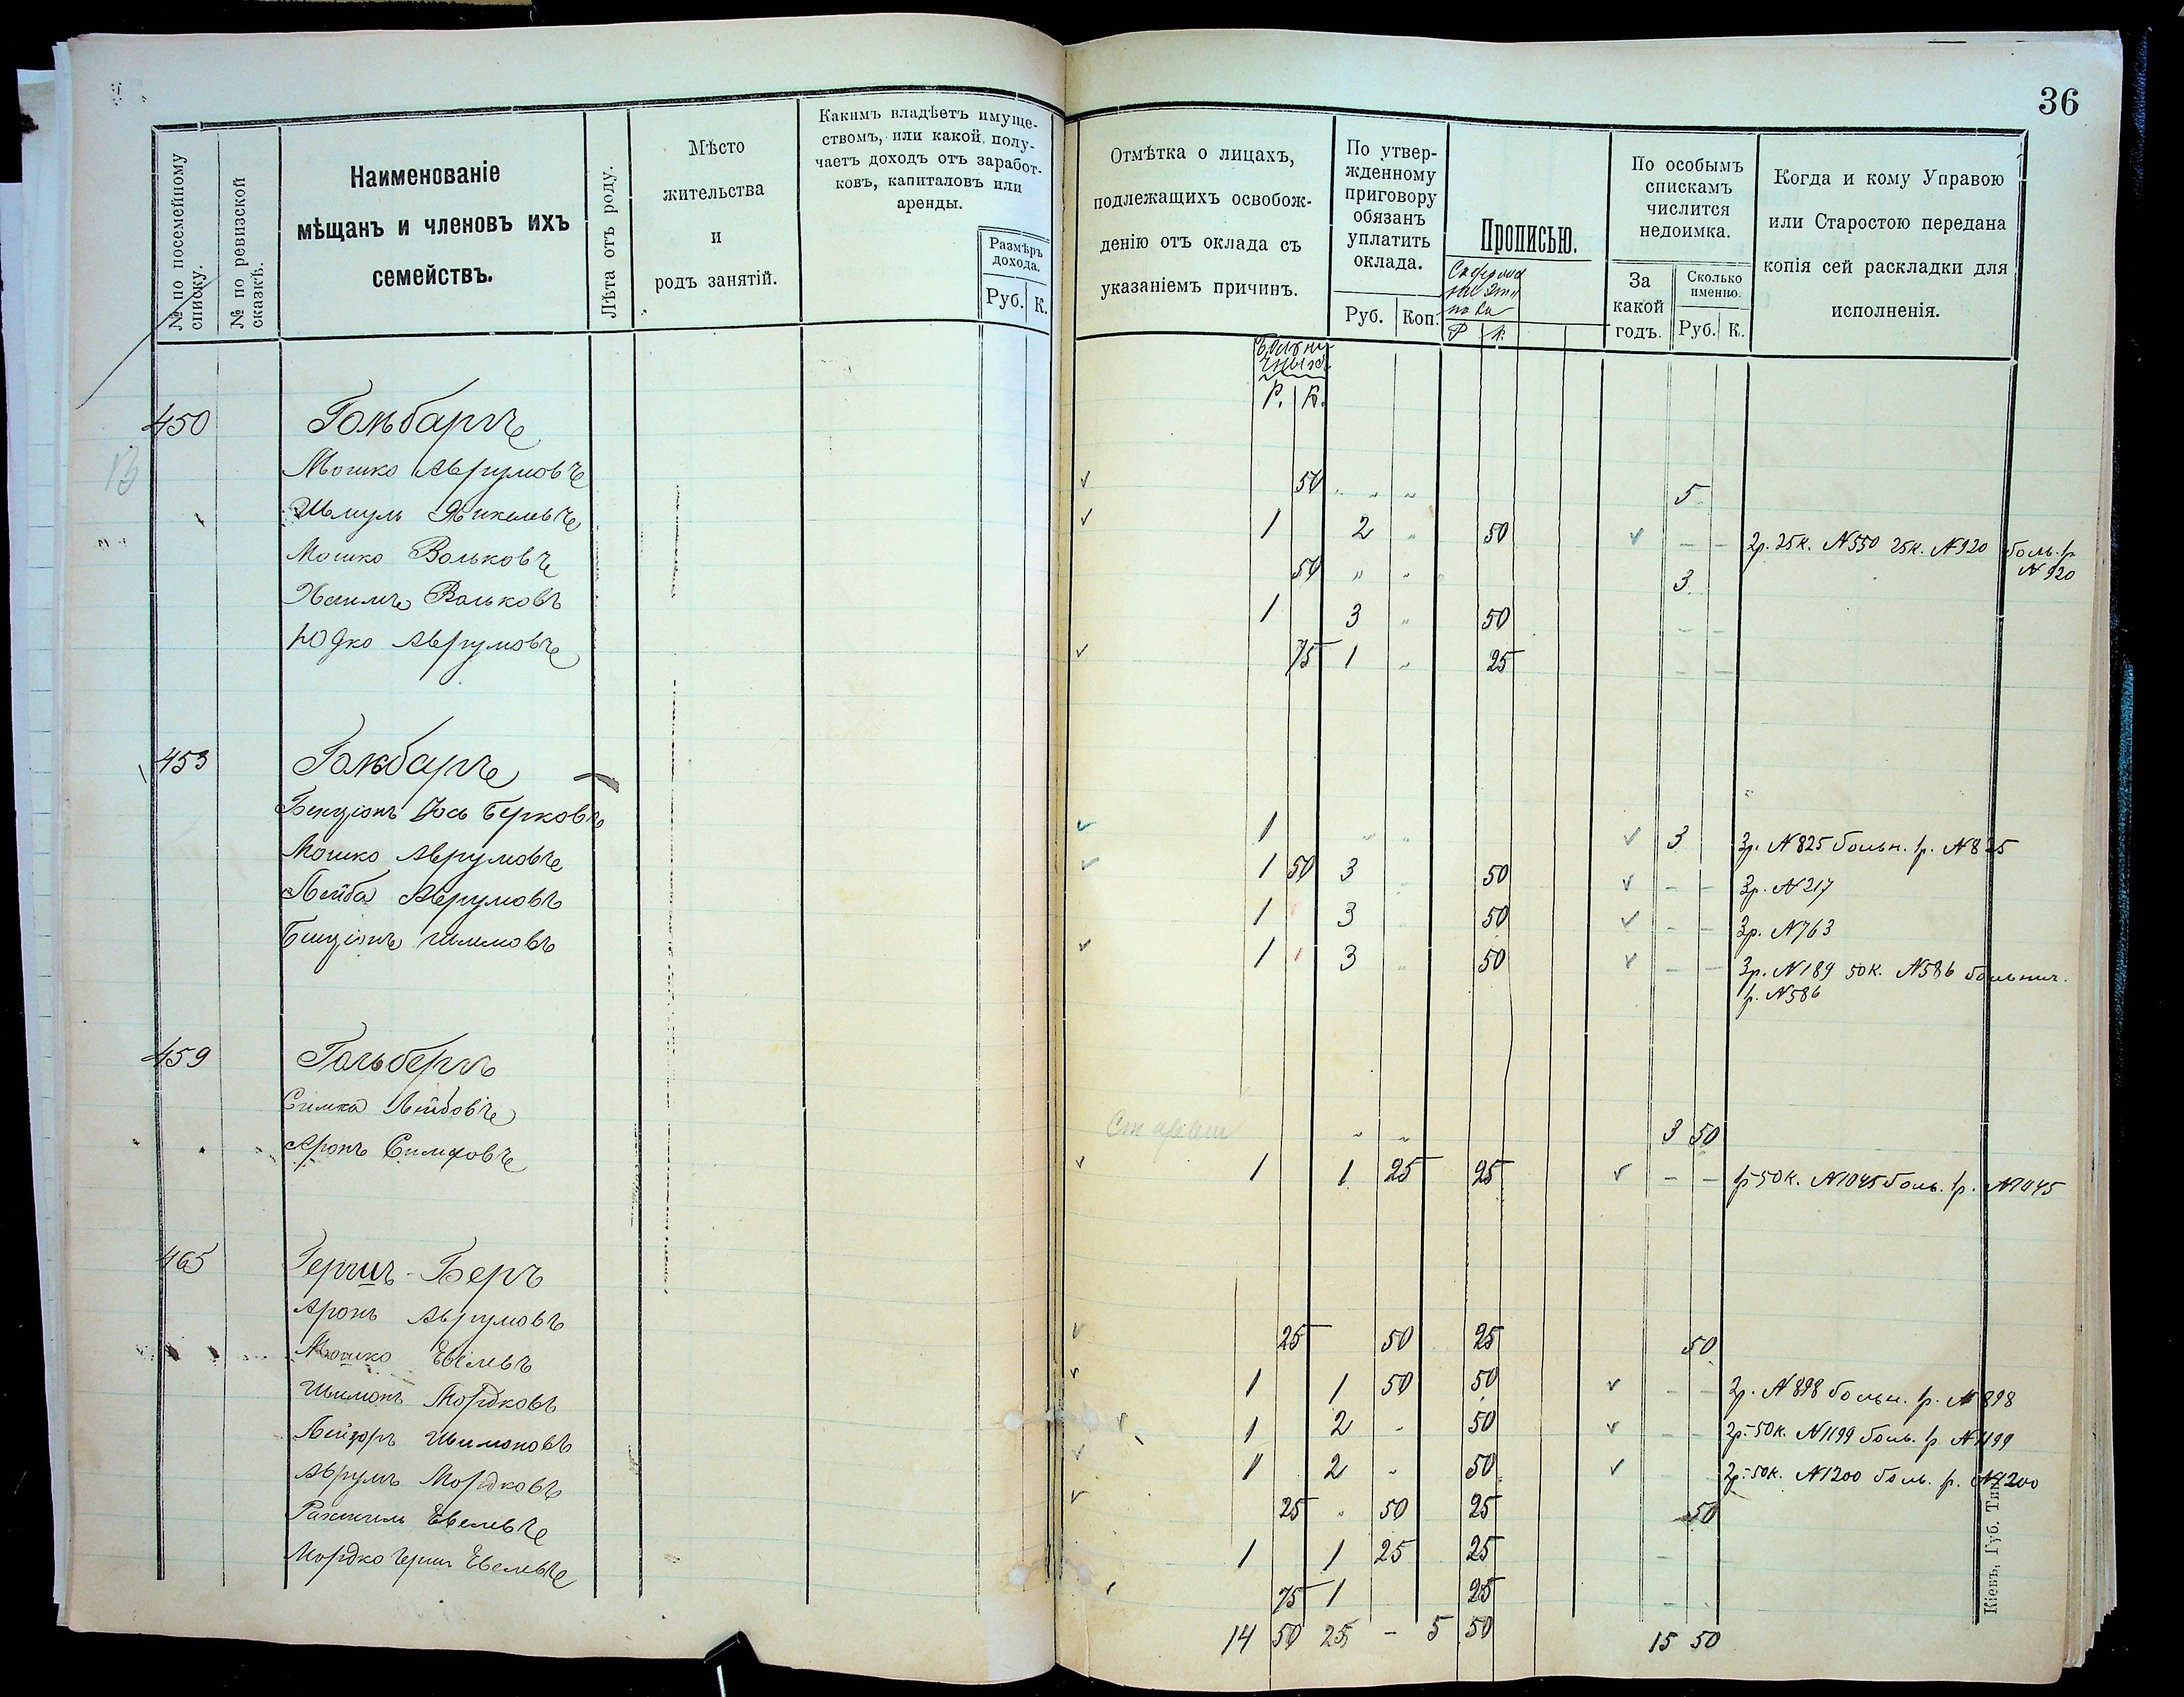 36
№ по посемейному списку.
№ по ревизской сказкѣ.
Наименованіе
мѣщанъ и членовъ ихъ
семействъ.
Лѣта отъ роду.
Мѣсто
жительства
и
родъ занятій.
Какимъ владѣетъ имуще-
ствомъ, или какой полу-
чаетъ доходъ отъ заработ-
ковъ, капиталовъ или
аренды.
Размѣръ
дохода.
Руб. К.
Отмѣтка о лицахъ,
подлежащихъ освобож-
денію отъ оклада съ
указаніемъ причинъ.
По утвер-
жденному
приговору
обязанъ
уплатить
оклада.
Руб. Коп.
Прописью.
Р К.
По особымъ
спискамъ
числится
недоимка.
За
какой
годъ.
Сколько
именно.
Руб. К.
Когда и кому Управою
или Старостою передана
копія сей раскладки для
исполненія.
Р. К.
450 Гольбаргъ
Мошко Аврумовъ 50 " " 5
Шмуль Янкелевъ 1 2 " 50 — — 2р. 25к. N550 25к. N920 боль. 1р
N920
Мошко Вольковъ 50 " " 3
Хаимъ Вольковъ 1 3 " 50 — —
Юдко Аврумовъ 75 1 " 25 — —
453 Гольбаргъ
Бенціонъ Іось Берковъ 1 " " 3 3р. N825 больн. 1р. N825
Мошко Аврумовъ 1 50 3 " 50 — — 3р. N217
Лейба Аврумовъ 1 3 " 50 — — 3р. N763
Бенціонъ Шлиомовъ 1 3 " 50 — — 3р. N189 50к. N586 больнич.
1р. N586
459 Гольбергъ
Симха Лейбовъ " " 3 50
Аронъ Симховъ 1 1 25 25 — — 1р 50к. N1045 боль. 1р. N1045
465 Гершъ-Беръ
Аронъ Аврумовъ 25 50 25 50
Мошко Евелевъ 1 1 50 50 — — 2р. N898 больн. 1р. N898
Шимонъ Мордковъ 1 2 - 50 — — 2р. 50к. N1199 боль. 1р N1199
Лейзоръ Шимоновъ 1 2 - 50 — — 2р. 50к. N1200 боль. 1р. N1200
Аврумъ Мордковъ 25 " 50 25 50
Рахмиль Евелевъ 1 1 25 25 —
Мордко Герш Евелевъ 75 1 25 —
14 50 25 — 5 50 15 50
Кіевъ, Губ. Тип.